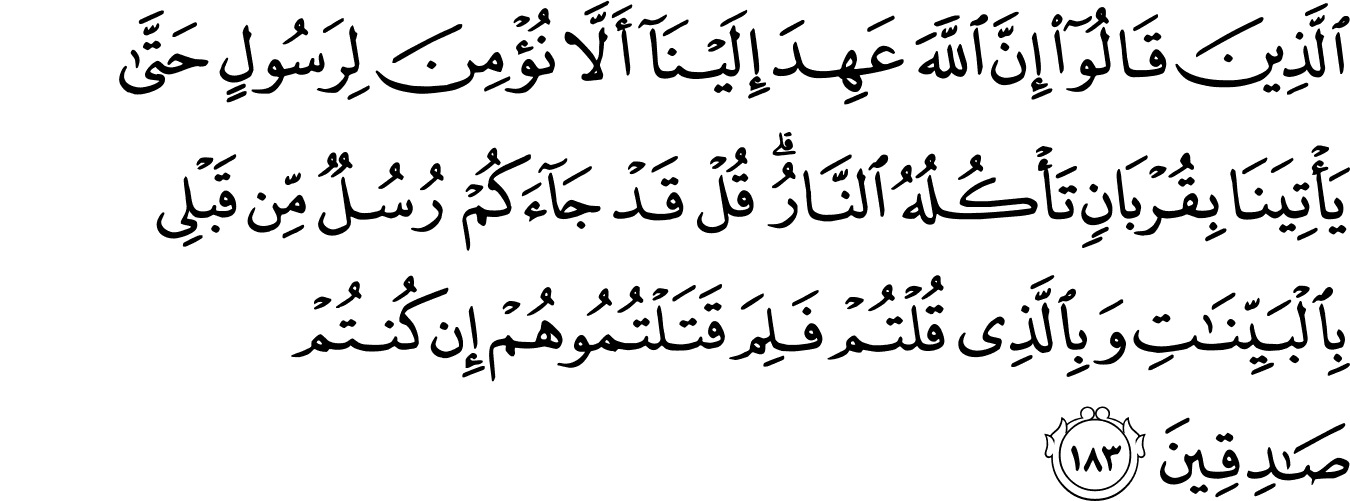 ٱلَّذِينَ قَالُوٓا۟ إِنَّ ٱللَّهَ عَهِدَ إِلَيْنَآ أَلَّا نُؤْمِنَ لِرَسُولٍ حَتَّىٰ
يَأْتِيَنَا بِقُرْبَانٍ تَأْكُلُهُ ٱلنَّارُ ۗ قُلْ قَدْ جَآءَكُمْ رُسُلٌ مِّن قَبْلِى
بِٱلْبَيِّنَـٰتِ وَبِٱلَّذِى قُلْتُمْ فَلِمَ قَتَلْتُمُوهُمْ إِن كُنتُمْ
صَـٰدِقِينَ ١٨٣